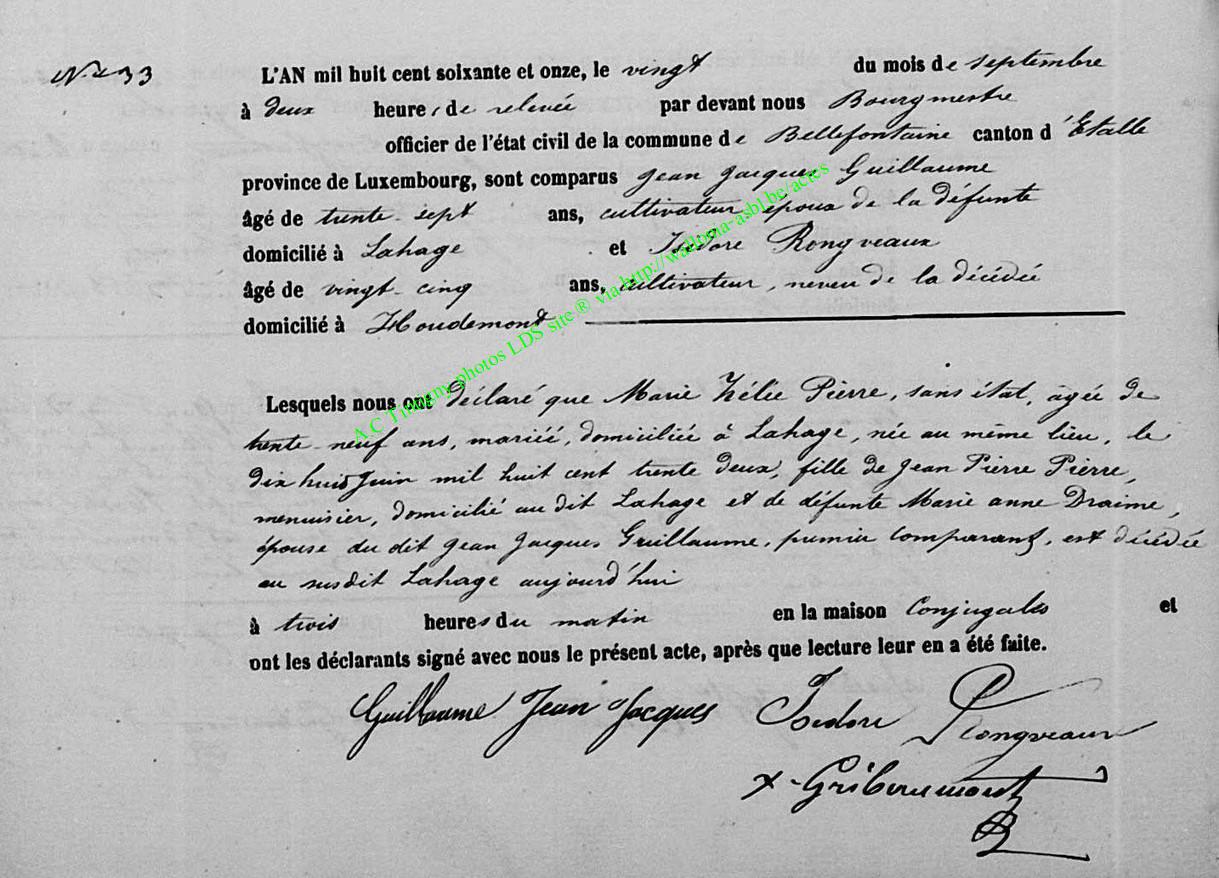 N° 33
L'AN mil huit cent soixante et onze, le vingt du mois de septembre
à deux heures de relevée par devant nous Bourgmestre
officier de l'état civil de la commune de Bellefontaine canton d'Etalle
province de Luxembourg, sont comparus Jean Jacques Guillaume
âgé de trente-sept ans, cultivateur époux de la défunte
domicilié à Lahage et Isidore Rongveaux
âgé de vingt-cinq ans, cultivateur, neveu de la décédée
domicilié à Houdemont
Lesquels nous ont déclaré que Marie Zélie Pierre, sans état, âgée de
trente-neuf ans, mariée, domiciliée à Lahage, née au même lieu, le
dix huit Juin mil huit cent trente deux, fille de Jean Pierre Pierre,
menuisier, domicilié au dit Lahage et de défunte Marie anne Draime,
épouse du dit Jean Jacques Guillaume, premier comparant, est décédée
au susdit Lahage aujourd'hui
à trois heures du matin en la maison Conjugale et
ont les déclarants signé avec nous le présent acte, après que lecture leur en a été faite.
Guillaume Jean Jacques Isidore Rongveaux
A C Tintigny photos LDS site ® via http://wallonia-asbl.be/actes